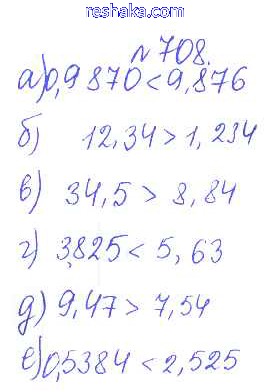 reshaka.com
№ 708.
а) 0,9870 < 9,876
б) 12,34 > 1,234
в) 34,5 > 8,84
г) 3,825 < 5,63
д) 9,47 > 7,54
е) 0,5384 < 2,525